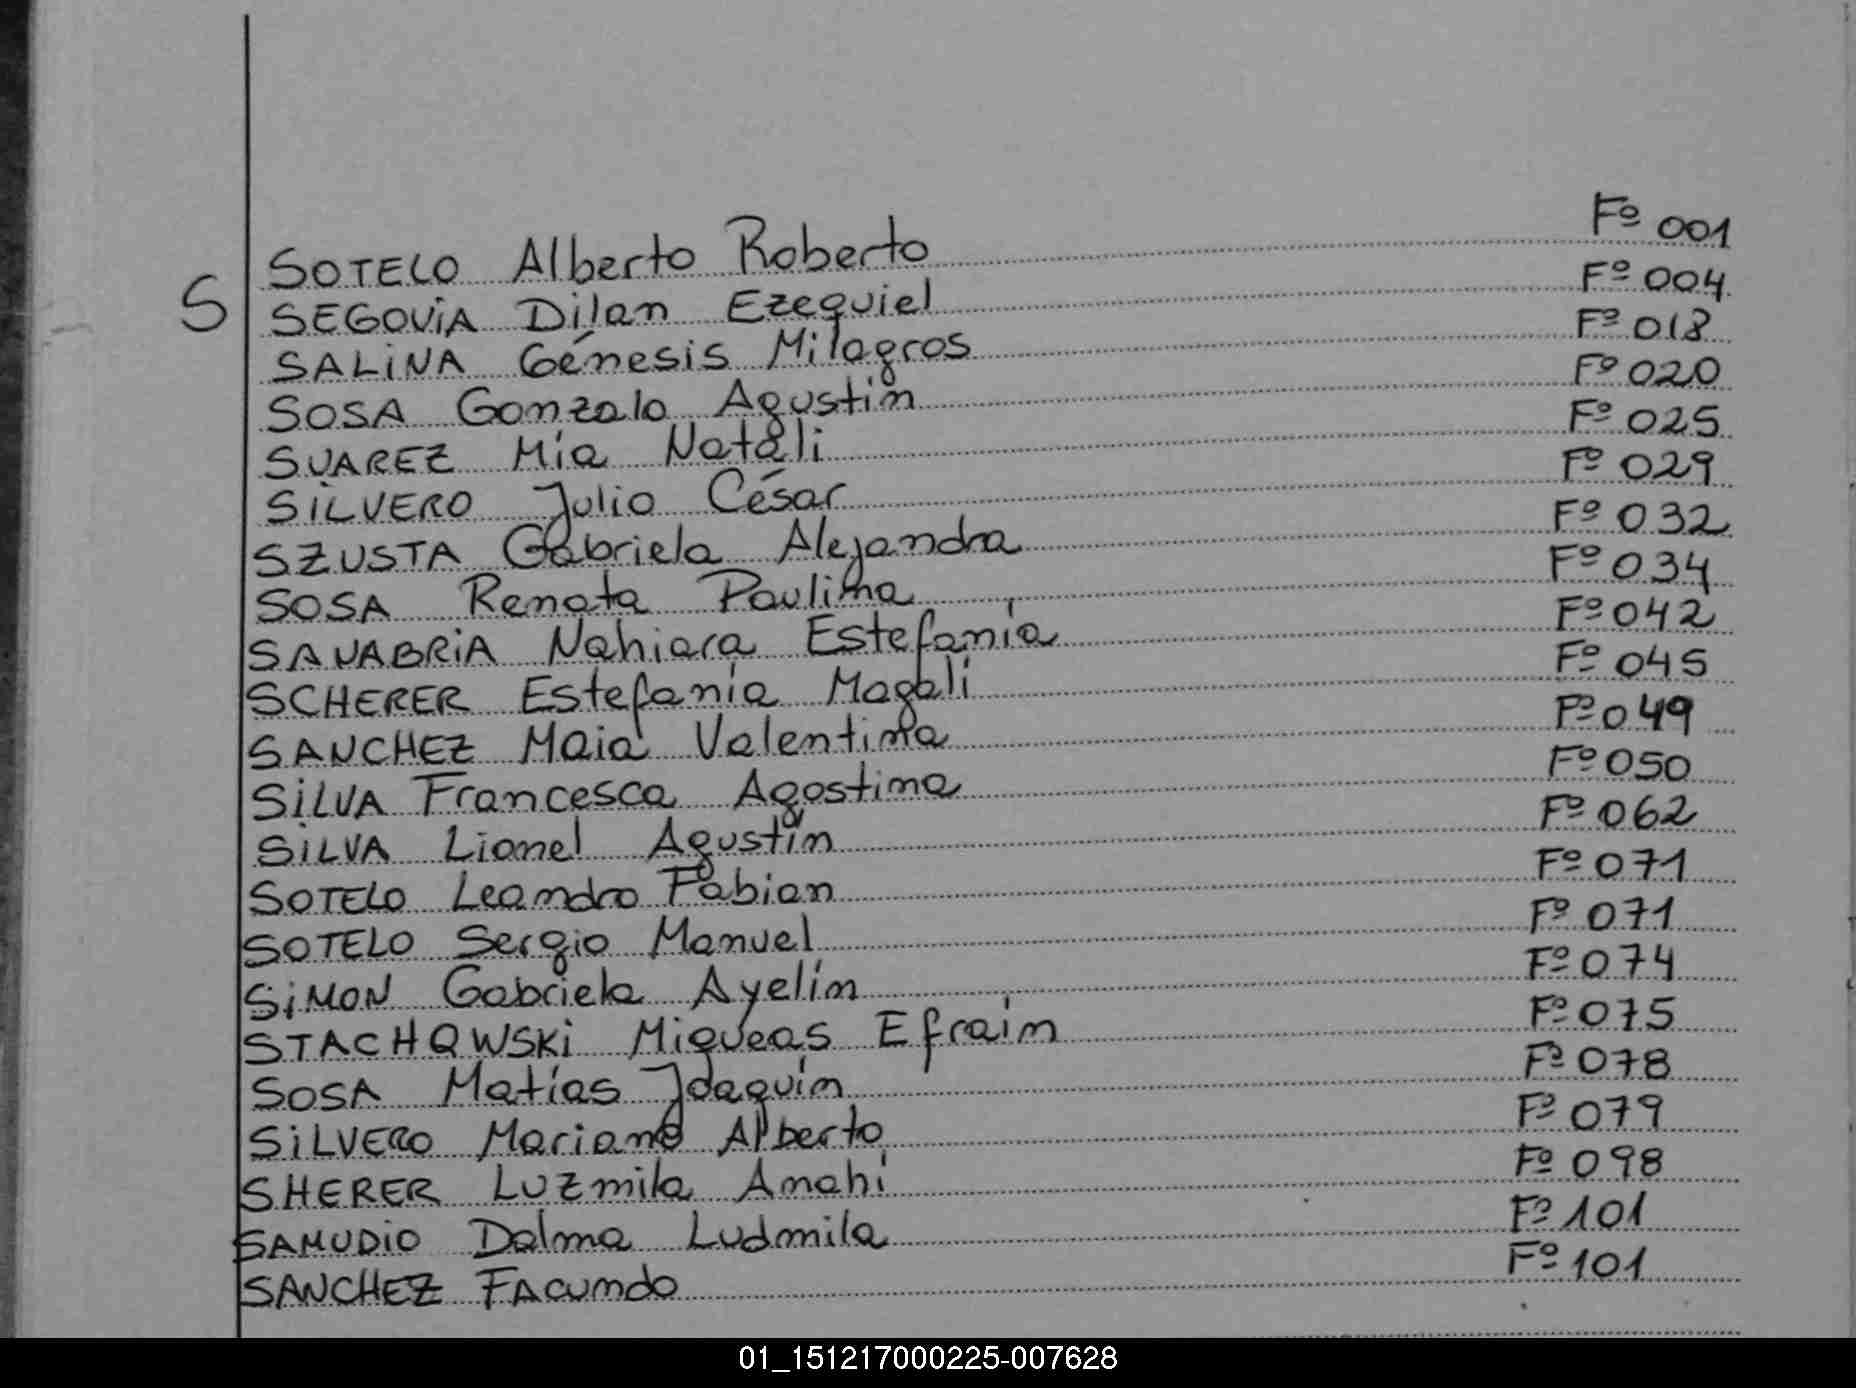 S
SOTELO Alberto Roberto Fº 001
SEGOVIA Dilan Ezequiel Fº 004
SALINA Génesis Milagros Fº 018
SOSA Gonzalo Agustín Fº 020
SUAREZ Mía Natali Fº 025
SILVERO Julio César Fº 029
SZUSTA Gabriela Alejandra Fº 032
SOSA Renata Paulina Fº 034
SANABRIA Nahiara Estefanía Fº 042
SCHERER Estefanía Magali Fº 045
SANCHEZ Maia Valentina Fº 049
SILVA Francesca Agostina Fº 050
SILVA Lionel Agustín Fº 062
SOTELO Leandro Fabian Fº 071
SOTELO Sergio Manuel Fº 071
SIMON Gabriela Ayelín Fº 074
STACHOWSKI Miqueas Efraín Fº 075
SOSA Matías Joaquín Fº 078
SILVERO Mariano Alberto Fº 079
SHERER Luzmila Anahi Fº 098
SAMUDIO Dalma Ludmila Fº 101
SANCHEZ Facundo Fº 101
01_151217000225-007628